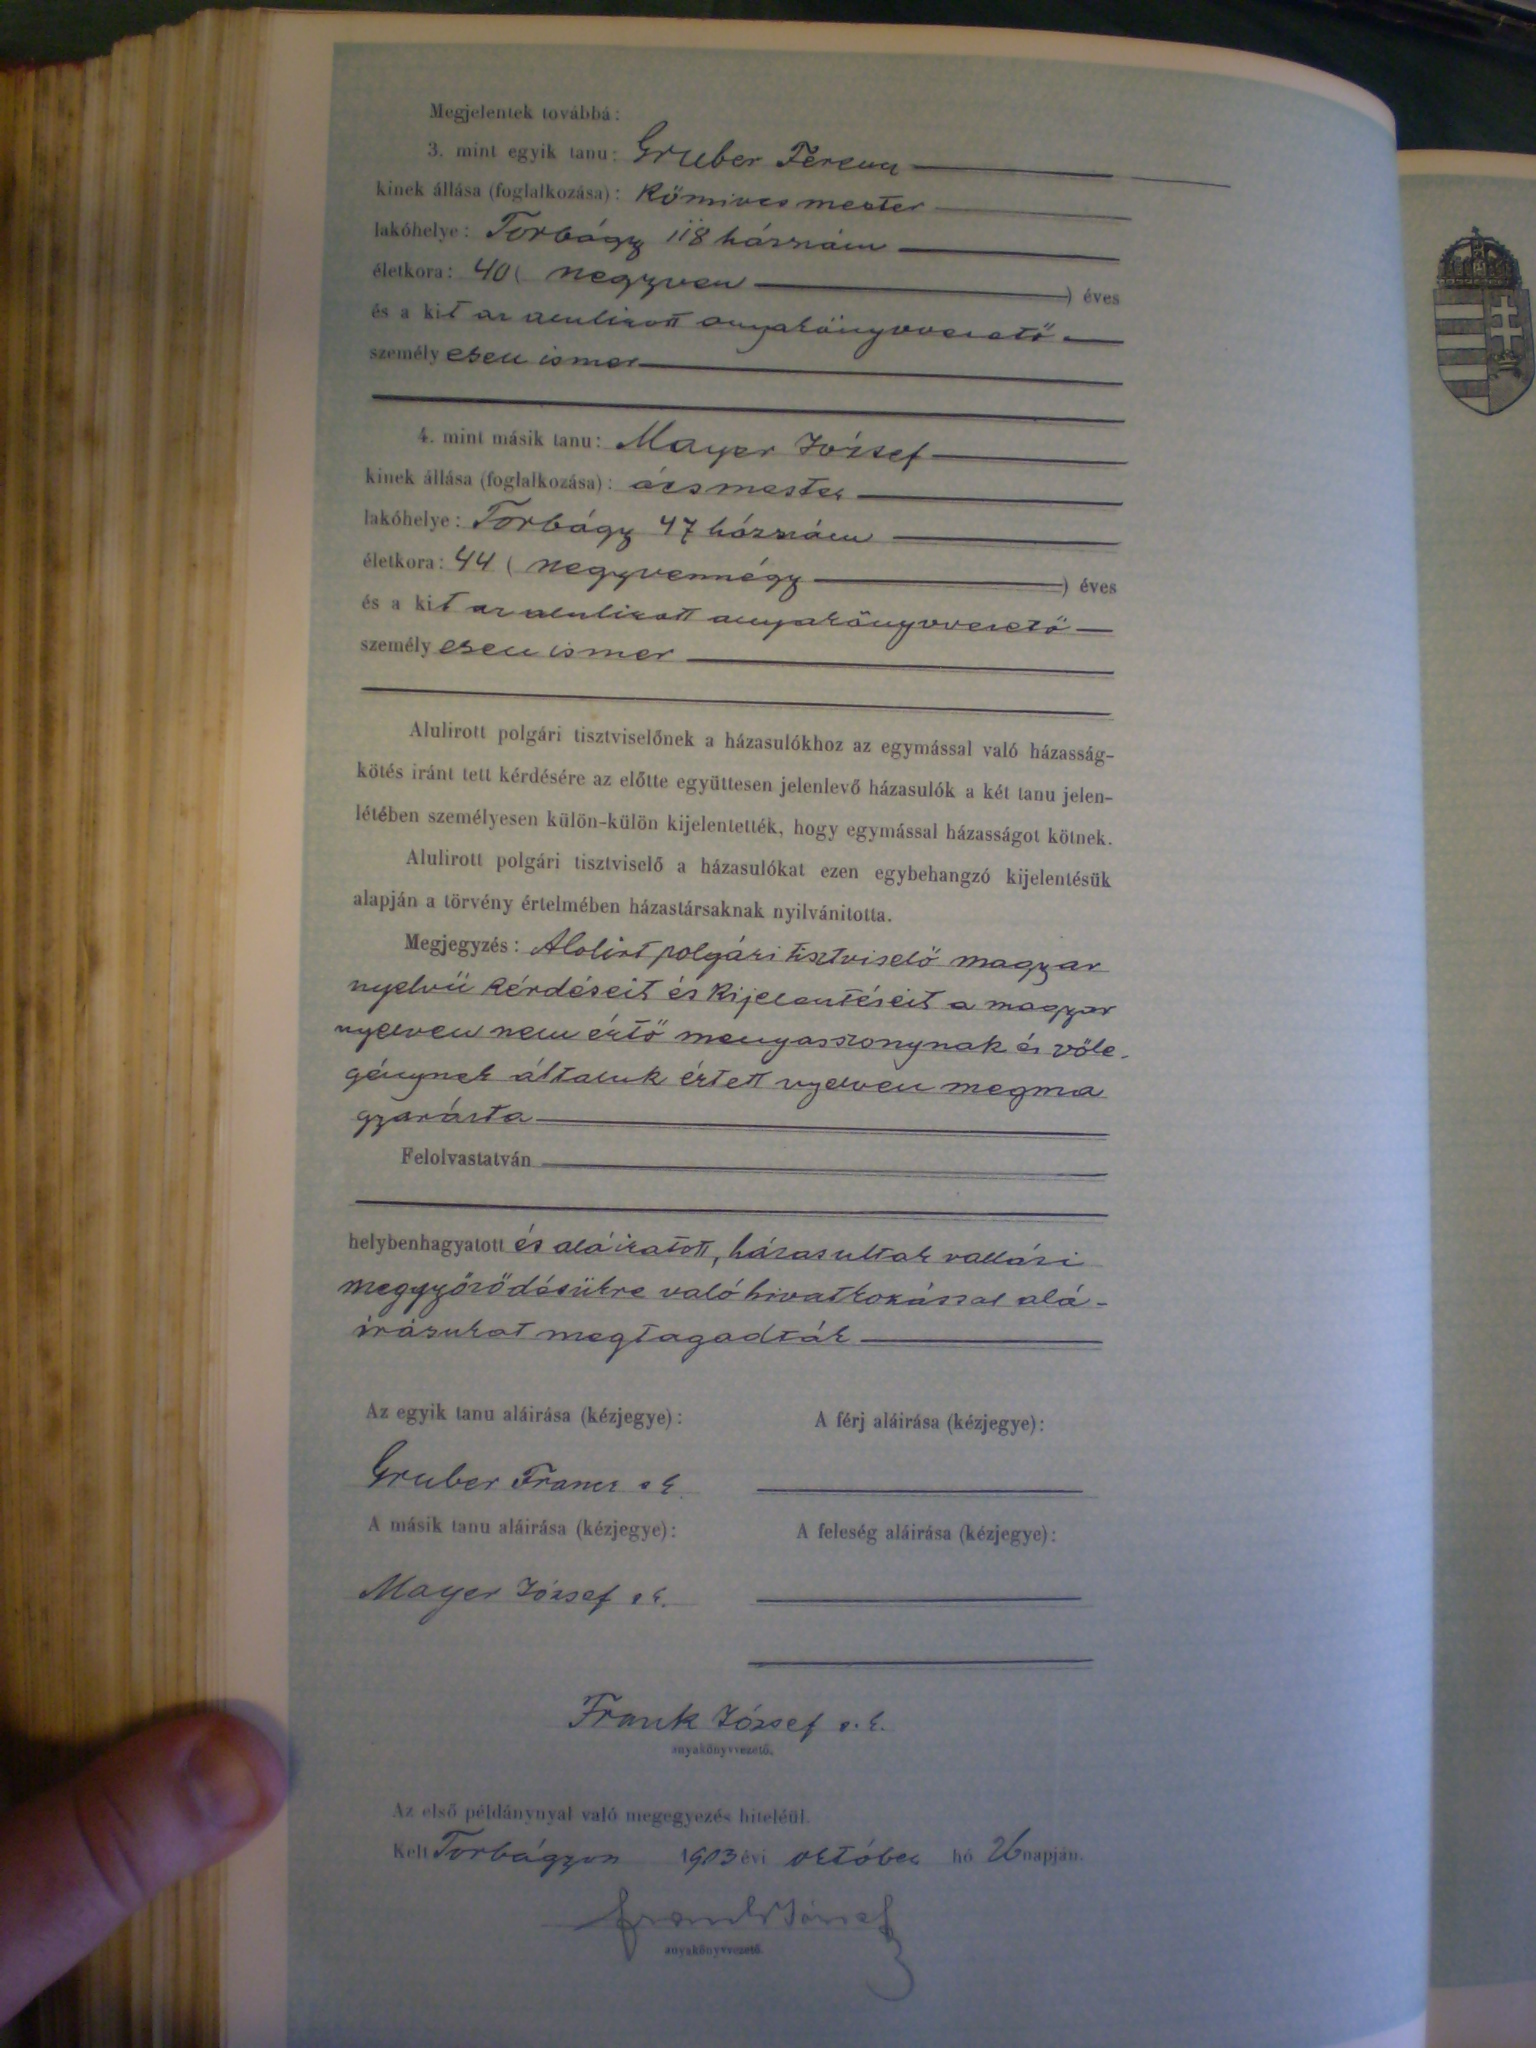 Megjelentek továbbá:
3. mint egyik tanu: Gruber Ferenc
kinek állása (foglalkozása): Kőmives mester
lakóhelye: Torbágy 118 házszám
életkora: 40 ( negyven ) éves
és a kit az alulirott anyakönyvvezető
személyesen ismer
4. mint másik tanu: Mayer József
kinek állása (foglalkozása): ácsmester
lakóhelye: Torbágy 47 házszám
életkora: 44 ( negyvennégy ) éves
és a kit az alulirott anyakönyvvezető
személyesen ismer
Alulirott polgári tisztviselőnek a házasulókhoz az egymással való házasság-
kötés iránt tett kérdésére az előtte együttesen jelenlevő házasulók a két tanu jelen-
létében személyesen külön-külön kijelentették, hogy egymással házasságot kötnek.
Alulirott polgári tisztviselő a házasulókat ezen egybehangzó kijelentésük
alapján a törvény értelmében házastársaknak nyilvánitotta.
Megjegyzés: Alolirt polgári tisztviselő magyar
nyelvü kérdéseit és kijelentéseit a magyar
nyelven nem értő menyasszonynak és vőle-
génynek általuk értett nyelven megma
gyarázta
Felolvastatván
helybenhagyatott és aláiratott, házasultak vallási
meggyőződésükre való hivatkozással alá-
irásukat megtagadták
Az egyik tanu aláirása (kézjegye): A férj aláirása (kézjegye):
Gruber Franz s. k.
A másik tanu aláirása (kézjegye): A feleség aláirása (kézjegye):
Mayer József s. k.
Frank József s. k.
anyakönyvvezető.
Az első példánynyal való megegyezés hiteléül.
Kelt Torbágyon 1903 évi október hó 26 napján.
Frank József
anyakönyvvezető.